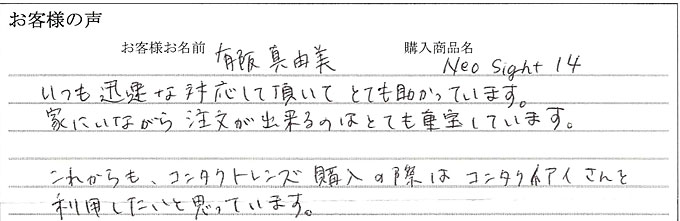 お客様の声
お客様お名前 有阪 真由美 購入商品名 Neo Sight 14
いつも迅速な対応して頂いてとても助かっています。
家にいながら注文が出来るのはとても重宝しています。
これからも、コンタクトレンズ購入の際はコンタクトアイさんを
利用したいと思っています。